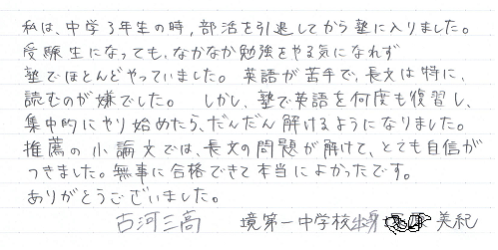 私は、中学3年生の時，部活を引退してから塾に入りました。
受験生になっても，なかなか勉強をやる気になれず
塾でほとんどやっていました。英語が苦手で，長文は特に、
読むのが嫌でした。しかし、塾で英語を何度も復習し、
集中的にやり始めたら、だんだん解けるようになりました。
推薦の小論文では、長文の問題が解けて、とても自信が
つきました。無事に合格できて本当によかったです。
ありがとうございました。
古河三高 境第一中学校出身 美紀